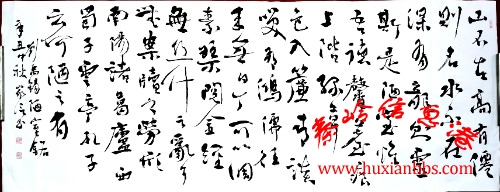 山不在高有僊
則名水不在
深有龍則靈
斯是陋室惟
吾德馨苔痕
上階綠草
色入簾青談
笑有鴻儒往
來無白丁可以調
素琴閱金經
無丝竹之亂耳
無案牘之勞形
南陽諸葛廬西
蜀子雲亭孔子
云何陋之有
劉禹錫陋室銘
辛丑中秋
www.huxianbbs.com